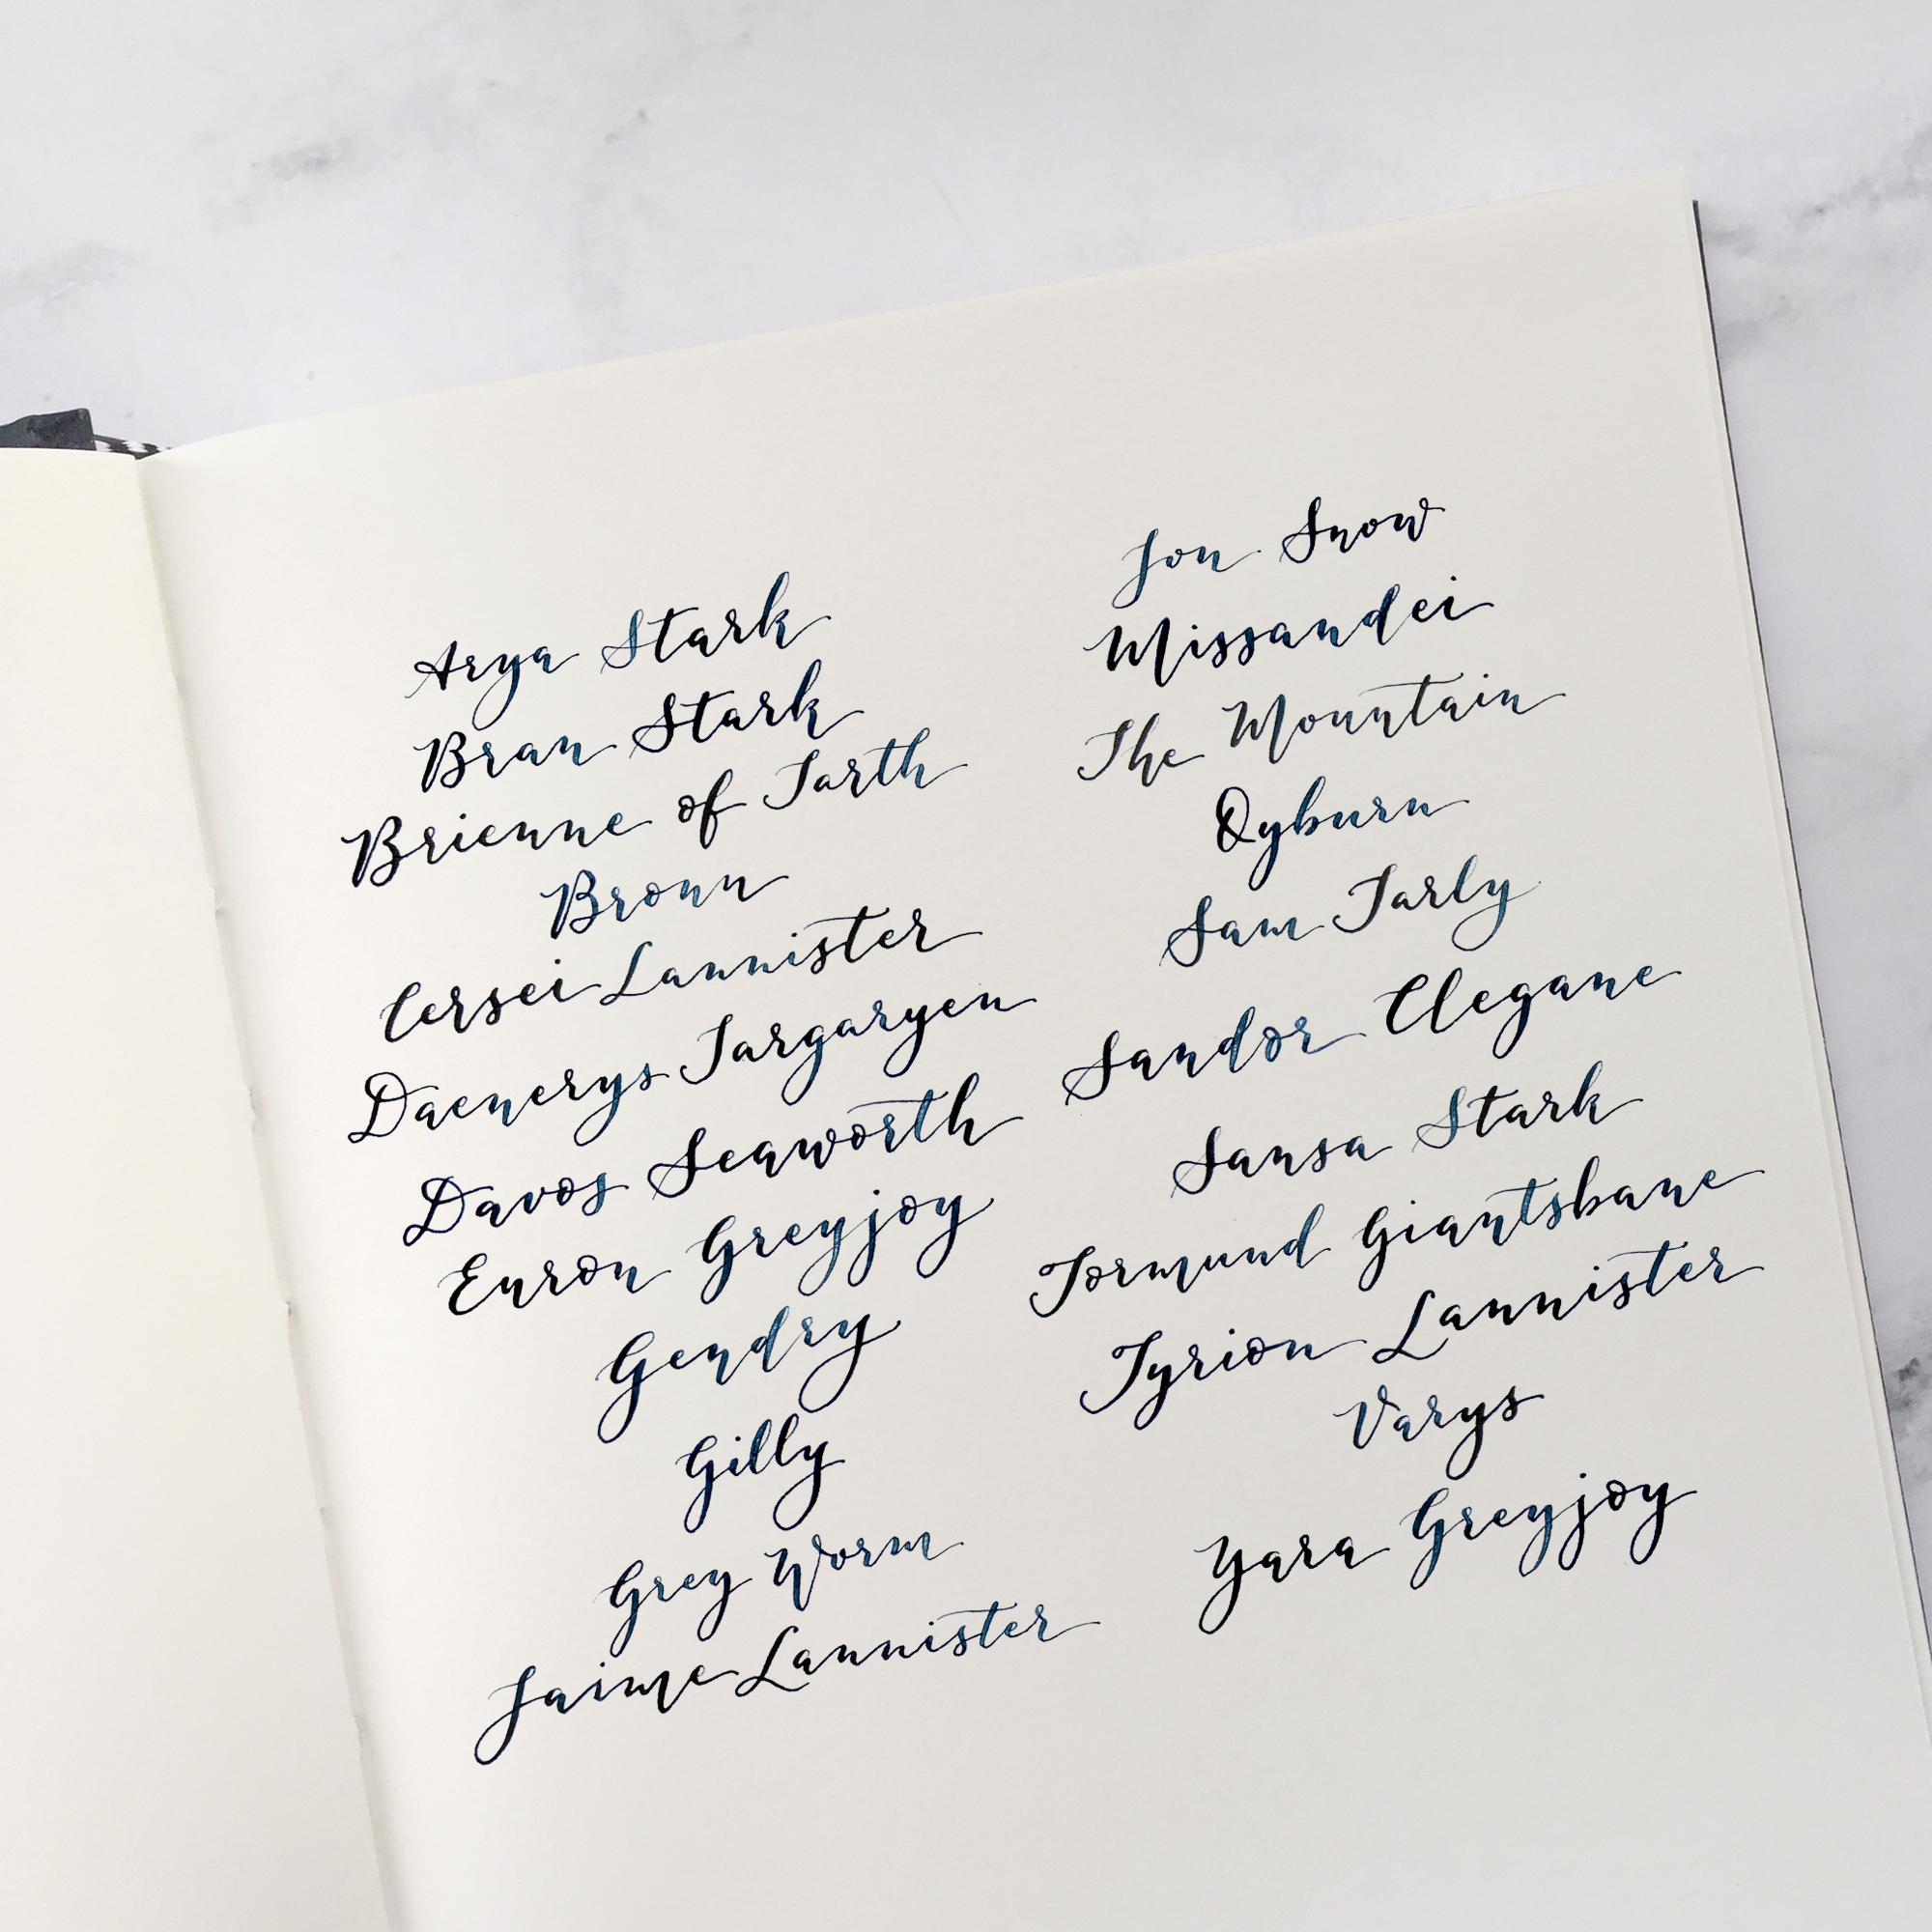 Arya Stark
Bran Stark
Brienne of Tarth
Bronn
Cersei Lannister
Daenerys Targaryen
Davos Seaworth
Euron Greyjoy
Gendry
Gilly
Grey Worm
Jaime Lannister
Jon Snow
Missandei
The Mountain
Qyburn
Sam Tarly
Sandor Clegane
Sansa Stark
Tormund Giantsbane
Tyrion Lannister
Varys
Yara Greyjoy